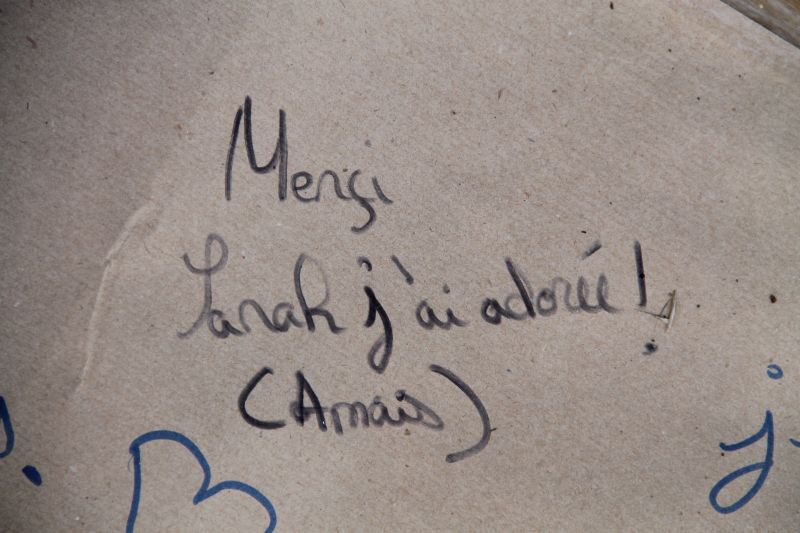 Merçi
Sarah j'ai adorée!
(Amais)
j